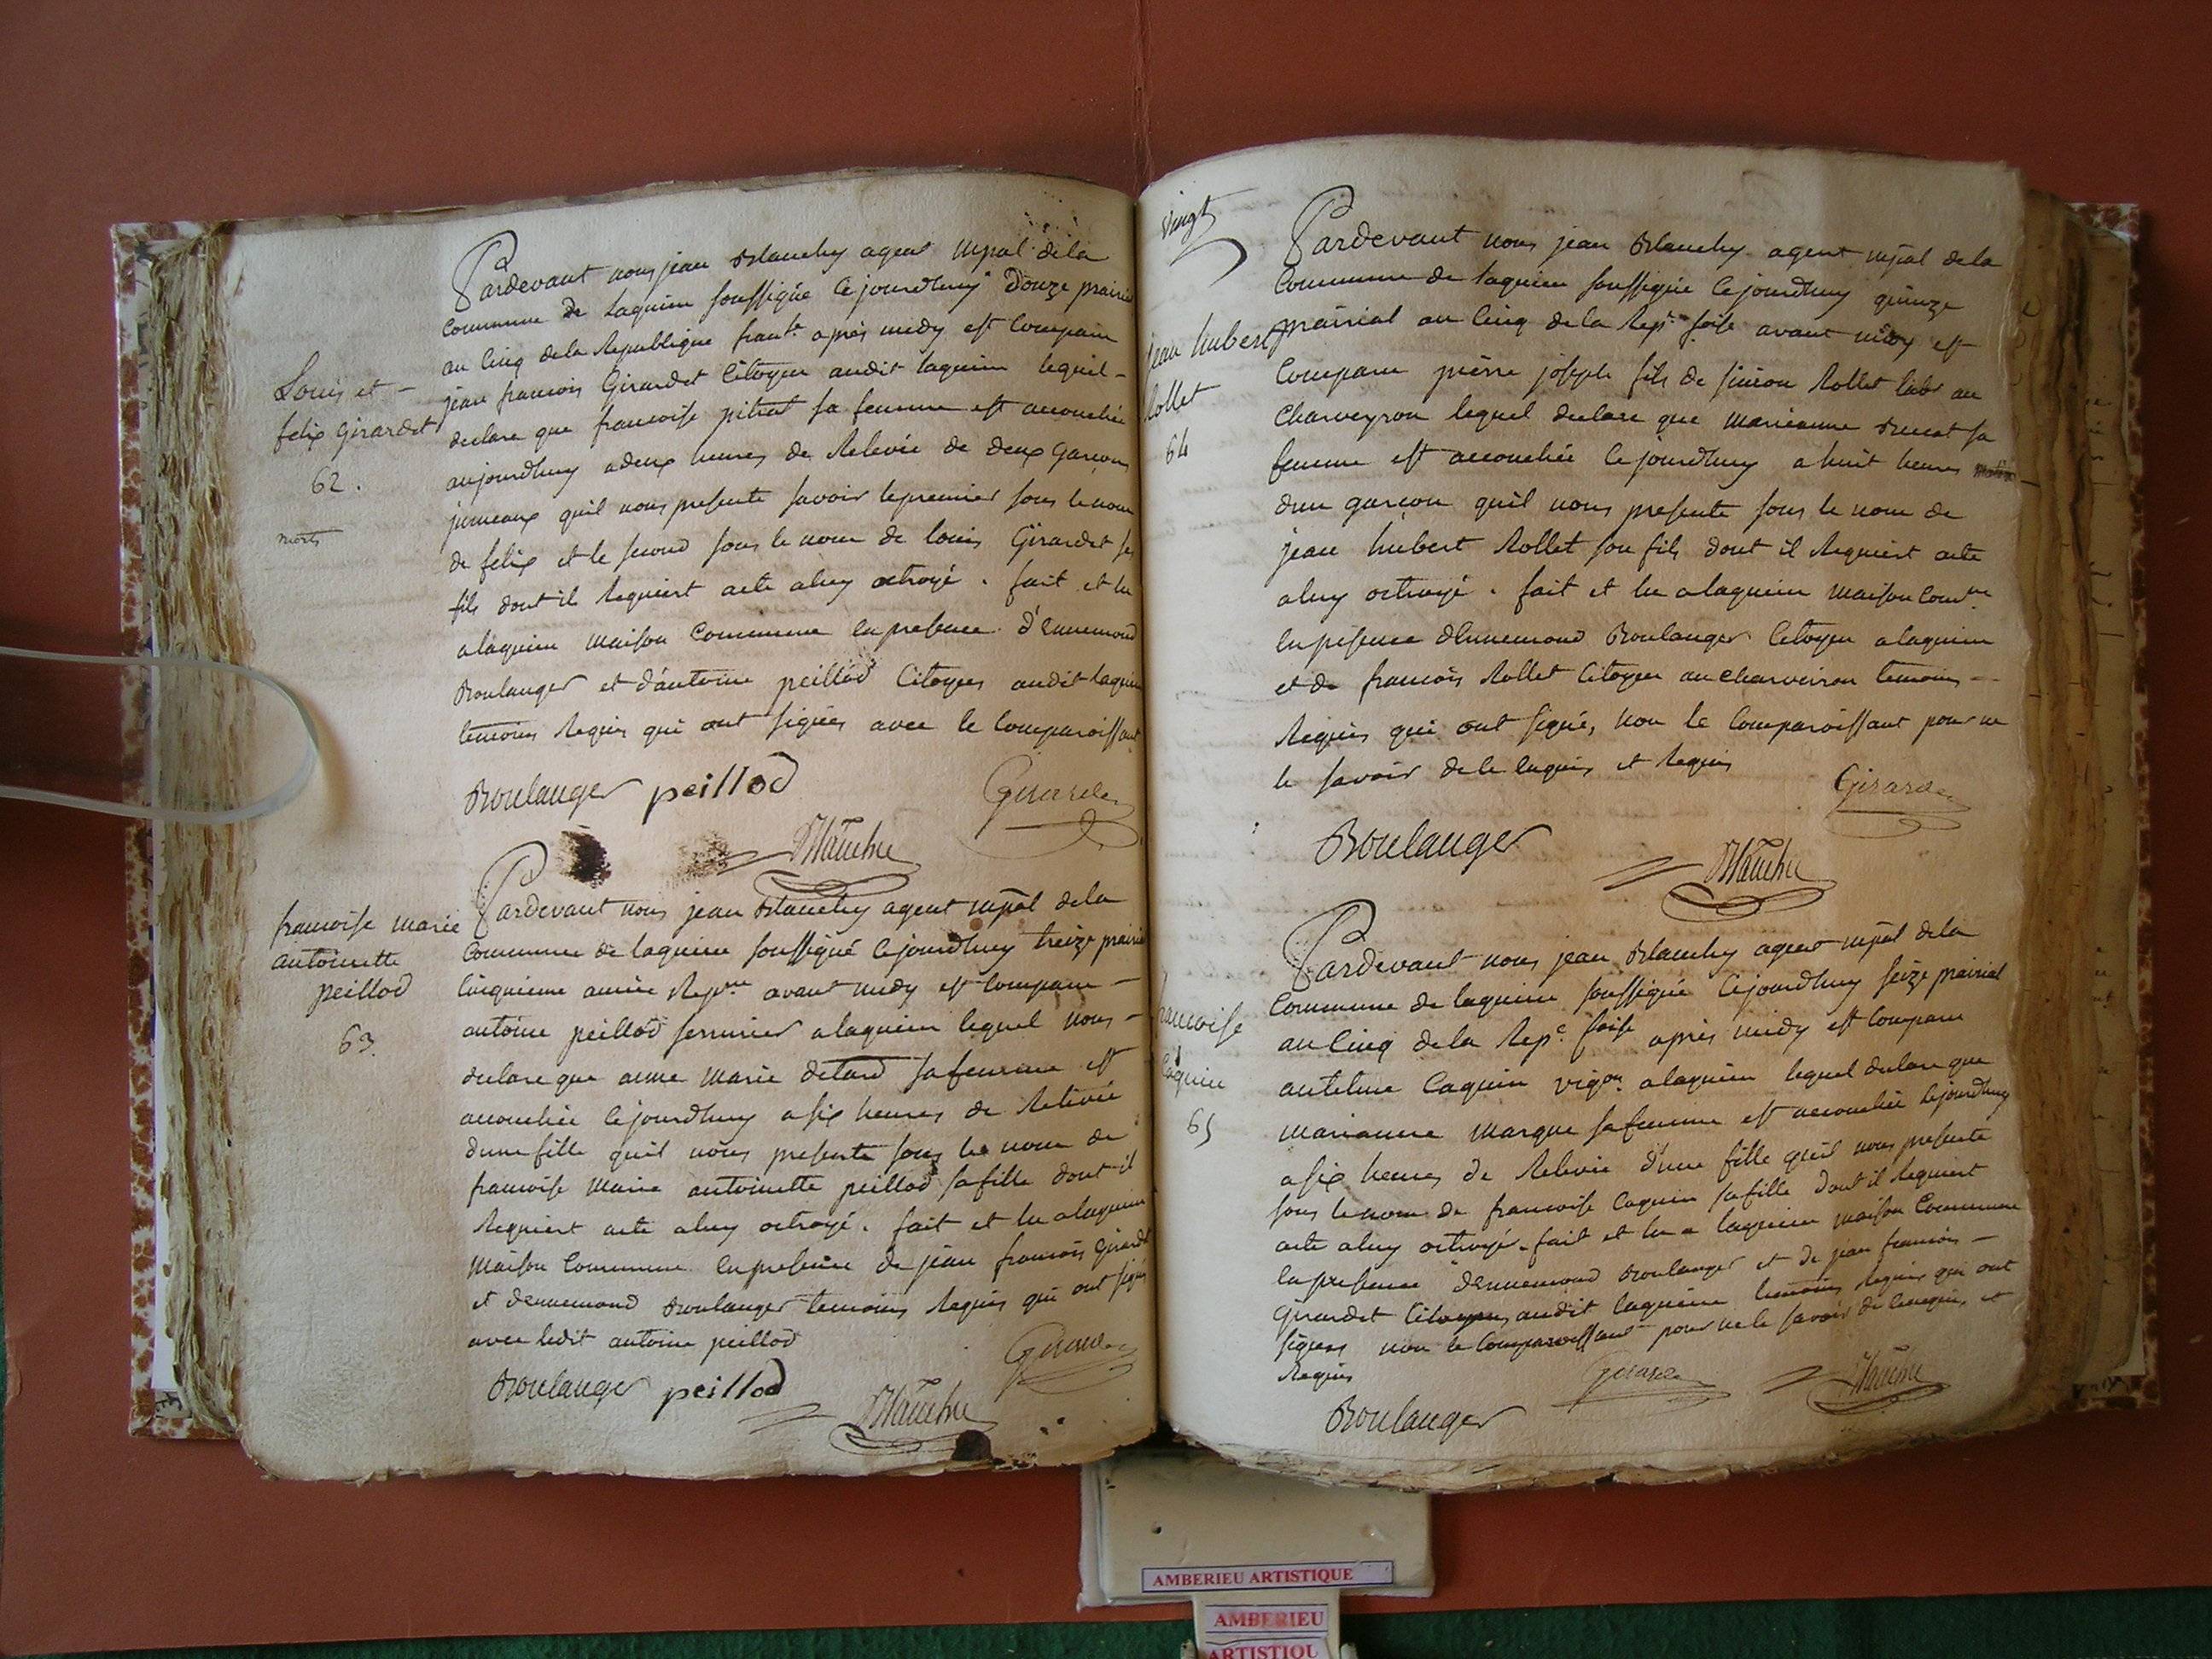 Pardevant nous jean Blanchy agent mpal dela
commune de Laguieu soussigné cejourdhuy Douze prairial
an cinq dela Republique franse après midy est comparu
jean francois Girardet Citoyen audit laguieu lequel -
declare que francoise pitrat sa femme est accouchée
aujourdhuy a deux heures de Relevée de deux garcons
jumeaux quil nous presente savoir le premier sous le nom
de felix et le second sous le nom de louis Girardet ses
fils dont il Requiert acte aluy octroyé. fait et lu
alaguieu maison Commune en presence d'Ennemond
Boulanger et d'antoine peillod Citoyens audit laguieu
temoins Requis qui ont signés avec le Comparoissant
Boulanger peillod Girardet
Blanchy
Louis et -
felix Girardet
62.
morts
Pardevant nous jean Blanchy agent mpal dela
Commune de laguieu soussigné cejourdhuy treize prairial
Cinquieme année Repne avant midy est Comparu -
antoine peillod serrurier alaguieu lequel nous -
declare que anne marie detard sa femme est
accouchée cejourdhuy a six heures de Relevée
dune fille quil nous presente sous le nom de
francoise Marie antoinette peillod sa fille dont il
Requiert acte aluy octroyé. fait et lu alaguieu
Maison Commune en presence de jean francois Girardet
et dennemond Boulanger temoins Requis qui ont signé
avec ledit antoine peillod
Boulanger peillod Girardet
Blanchy
francoise marie
antoinette
peillod
63.
vingt
Pardevant nous jean Blanchy agent mpal dela
Commune de laguieu soussigné cejourdhuy quinze
prairial an Cinq dela Repe. fse avant midy est
Comparu pierre joseph fils de simeon Rollet labr au
Charveyron lequel declare que marieanne sa
femme est accouchée cejourdhuy a huit heures
dun garcon quil nous presente sous le nom de
jean hubert Rollet son fils dont il Requiert acte
aluy octroyé. fait et lu alaguieu Maison Comne
en presence dEnnemond Boulanger Citoyen alaguieu
et de francois Rollet Citoyen au charveiron temoins -
Requis qui ont signé, non le Comparoissant pour ne
le savoir de ce enquis et Requis
Girardet
Boulanger
Blanchy
jean hubert
Rollet
64
Pardevant nous jean Blanchy agent mpal dela
Commune de laguieu soussigné cejourdhuy seize prairial
an Cinq de la Repe. fse après midy est Comparu
antelme Caquin vigon alaguieu lequel declare que
marianne marque sa femme est accouchée cejourdhuy
a six heures de Relevée d'une fille quil nous presente
sous le nom de francoise Caquin sa fille dont il Requiert
acte aluy octroyé. fait et lu a laguieu maison Commune
en presence dEnnemond Boulanger et de jean francois -
Girardet Citoyens audit laguieu temoins Requis qui ont
signés non le Comparoissant pour ne le savoir de ce enquis et
Requis
Girardet Blanchy
Boulanger
francoise
Caquin
65
AMBERIEU ARTISTIQUE
AMBERIEU
ARTISTIQU